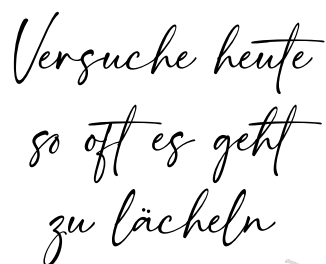 Versuche heute
so oft es geht
zu lächeln